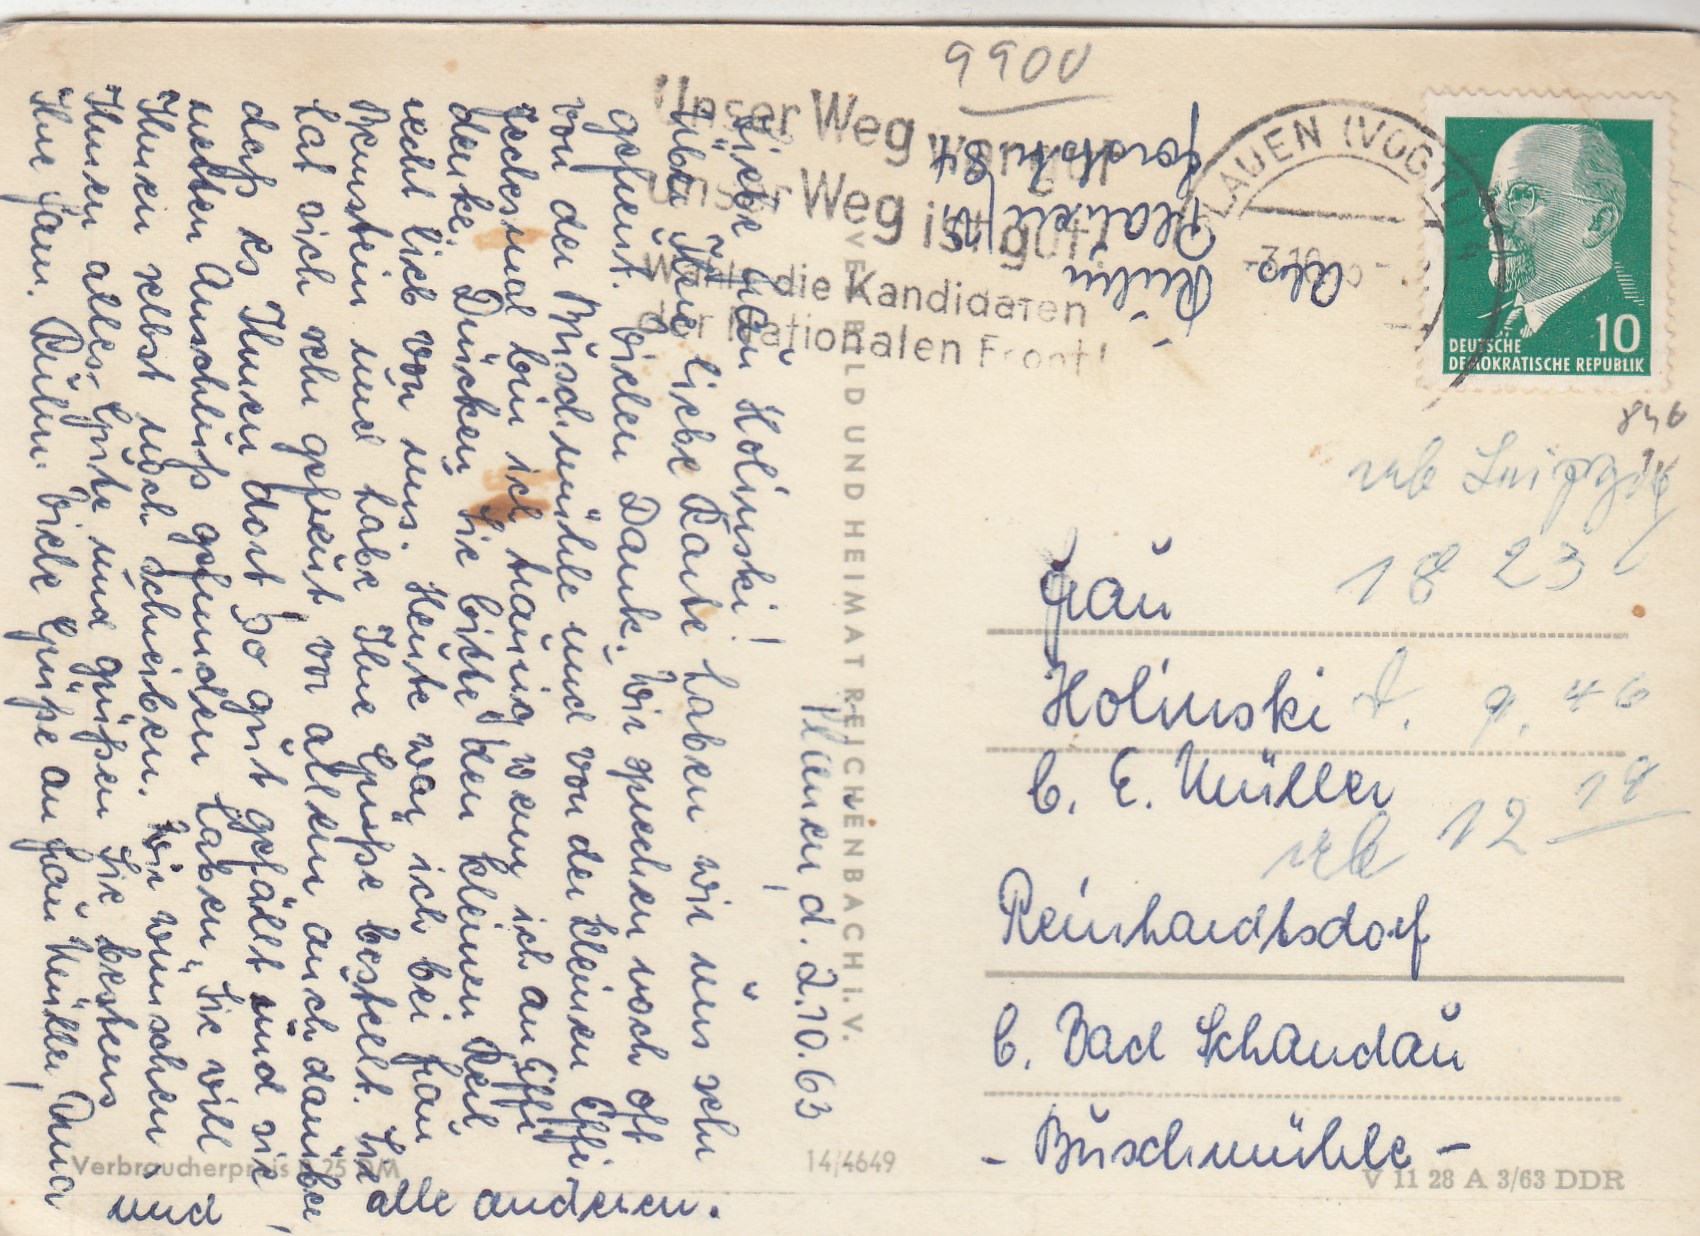 9900
Unser Weg war gut
Unser Weg ist gut!
Wählt die Kandidaten
der Nationalen Front!
PLAUEN (VOGTL)
DEUTSCHE
DEMOKRATISCHE REPUBLIK
10
Abs.
Rülm
Plauen
Plauen, d. 2.10.63
Liebe Frau Holinski!
Über Ihre liebe Karte haben wir uns sehr
gefreut. Vielen Dank. Wir sprechen noch oft
von der Buschmühle und von der kleinen Effi
Jedesmal bin ich traurig wenn ich an Effi
denke. Drücken Sie bitte den kleinen Kerl
recht lieb von uns. Heute war ich bei Frau
Bernstein und habe Ihre Grüße bestellt. Sie
hat sich sehr gefreut, vor allem auch darüber,
daß es Ihnen dort so gut gefällt und sie
netten Anschluß gefunden haben. Sie will
Ihnen selbst noch schreiben. Wir wünschen
Ihnen alles Gute und grüßen Sie bestens
Ihre Fam. Rülm. Viele Grüße an Frau Müller, Oma
und alle anderen.
VERLAG BILD UND HEIMAT REICHENBACH I. V.
Leipzig
18 23
Frau
Holinski
9.46
b. E. Müller
12 19
Reinhardtsdorf
b. Bad Schandau
- Buschmühle -
Verbraucherpreis 25 DM
14/4649
V 11 28 A 3/63 DDR